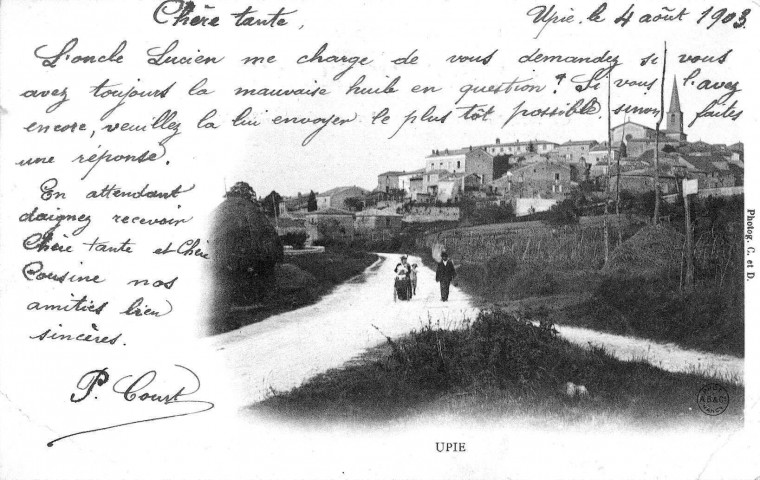 Upie. le 4 août 1903.
Chère tante,
L'oncle Lucien me charge de vous demandez si vous
avez toujours la mauvaise huile en question? Si vous l'avez
encore, veuillez la lui envoyer le plus tôt possible. sinon faites
une réponse.
En attendant
daignez recevoir
Chère tante et Chère
Cousine nos
amitiés bien
sincères.
P. Court
Photog. C. et D.
UPIE